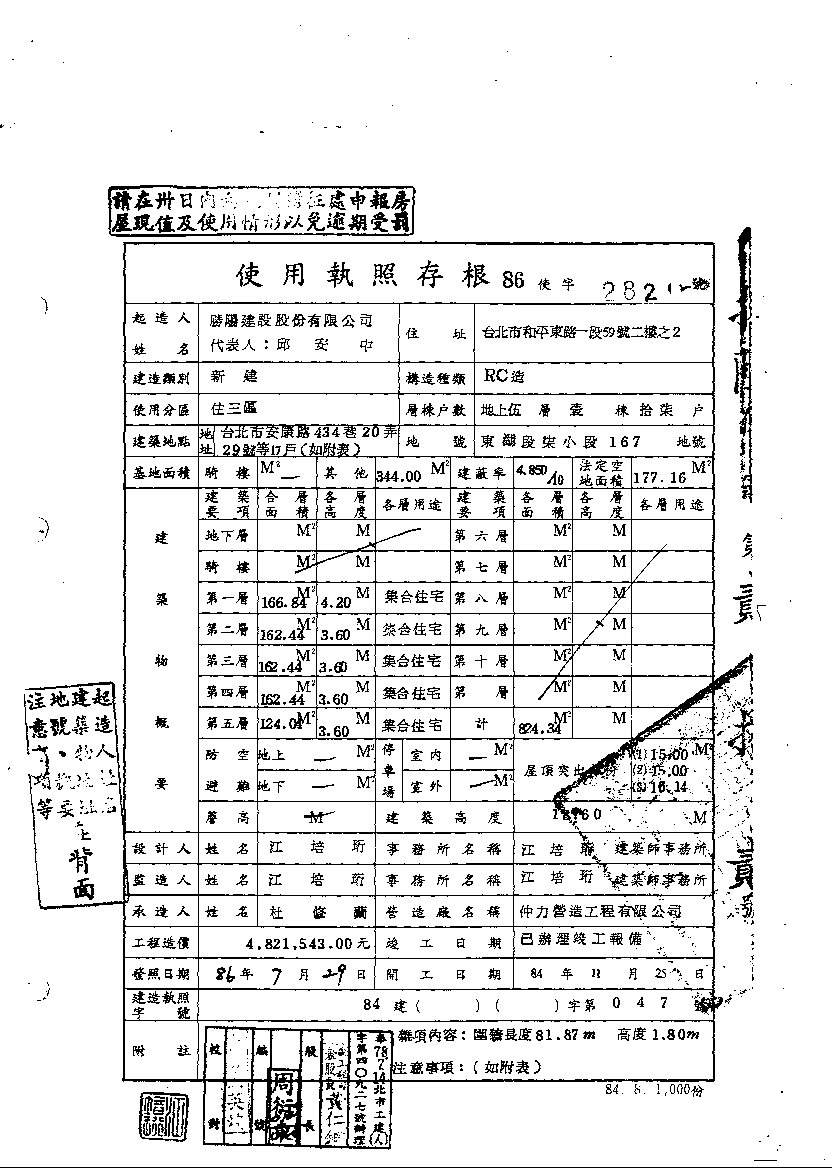 請在卅日內 處申報房
屋現值及使用情形以免逾期受罰
使用執照存根 86 使字 282 號
起造人姓名 勝陽建設股份有限公司 代表人：邱安中 住址 台北市和平東路一段59號二樓之2
建造類別 新建 構造種類 RC造
使用分區 住三區 層棟戶數 地上伍層壹棟拾柒戶
建築地點 地址 台北市安康路434巷20弄29號等17戶(如附表) 地號 東湖段柒小段167地號
基地面積 騎樓 M² — 其他 344.00 M² 建蔽率 4.850/10 法定空地面積 177.16 M²
建築物概要
建築要項 合層面積 各層高度 各層用途 建築要項 各層面積 各層高度 各層用途
地下層 M² M 第六層 M² M
騎樓 M² M 第七層 M² M
第一層 166.84 M² 4.20 M 集合住宅 第八層 M² M
第二層 162.44 M² 3.60 M 集合住宅 第九層 M² M
第三層 162.44 M² 3.60 M 集合住宅 第十層 M² M
第四層 162.44 M² 3.60 M 集合住宅 第 層 M² M
第五層 124.04 M² 3.60 M 集合住宅 計 824.34 M² M
防空避難 地上 — M² 停車場 室內 — M² 屋頂突出 (1)15.00 M²
地下 — M² 室外 — M² (2)15.00
(3)16.14
簷高 M 建築高度 M
設計人 姓名 江培珩 事務所名稱 江培珩建築師事務所
監造人 姓名 江培珩 事務所名稱 江培珩建築師事務所
承造人 姓名 杜修蘭 營造廠名稱 仲力營造工程有限公司
工程造價 4,821,543.00元 竣工日期 已辦理竣工報備
發照日期 86年7月29日 開工日期 84年11月25日
建造執照字號 84建( )( )字第047號
附註 雜項內容：圍牆長度81.87m 高度1.80m
注意事項：(如附表)
84. 8. 1,000份
起造人
建築物
地號、
注意
等
背面
校對
股長
周
第
貳
號